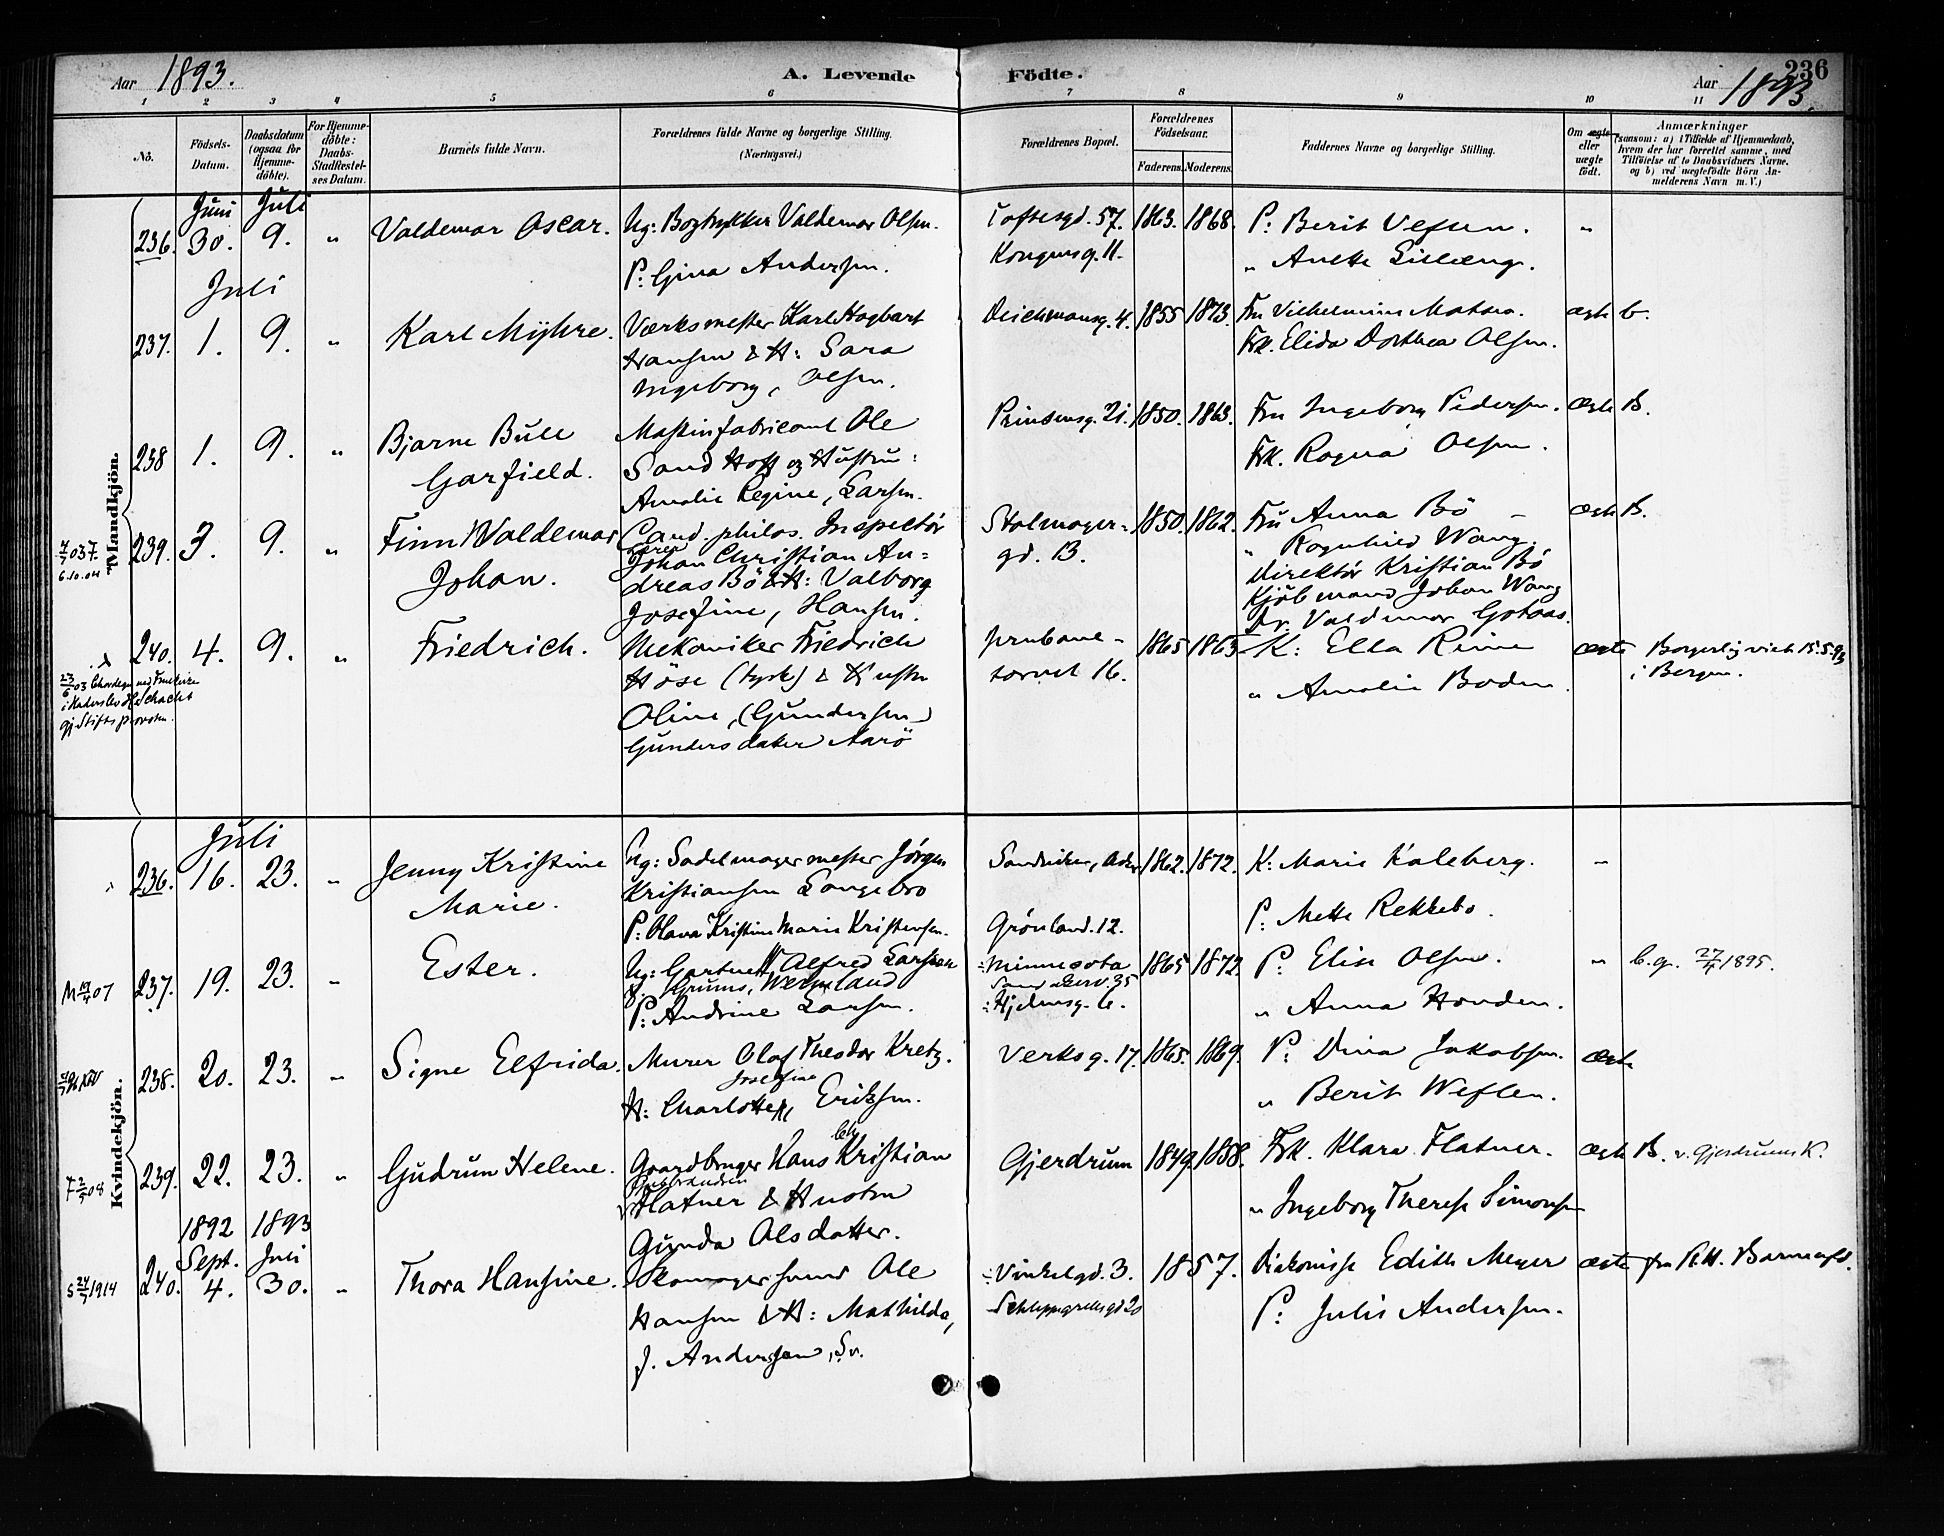 Aar 1893. A. Levende Födte. Aar 1893. 236
1 2 3 4 5 6 7 8 9 10 11
No.
Födsels-Datum.
Daabsdatum (ogsaa for Hjemmedöbte).
For Hjemmedöbte: Daabs-Stadfæstelses Datum.
Barnets fulde Navn.
Forældrenes fulde Navne og borgerlige Stilling. (Næringsvei.)
Forældrenes Bopæl.
Forældrenes Födselsaar.
Faderens. Moderens.
Faddernes Navne og borgerlige Stilling.
Om ægte eller uægte födt.
Anmærkninger
(saasom: a) i Tilfælde af Hjemmedaab,
hvem der har forrettet samme, med
Tilföielse af to Daabsvidners Navne.
og b) ved uægtefödte Börn An-
melderens Navn m. V.)
Mandkjön.
Juni Juli
236. 30. 9. " Valdemar Oscar. Ug: Bogtrykker Valdemar Olsen. Toftesgd. 57. 1863. 1868. P: Berit Veflen. "
P: Gina Andersen. Kongensg. 11. " Anette Lilleeng.
Juli
237. 1. 9. " Karl Myhre. Værksmester Karl Hagbart Deichmansg. 4. 1855 1873. Fru Vilhelmine Matsen. ægte b.
Hansen & H: Sara Frk. Elida Dorthea Olsen.
Ingeborg, Olsen.
238 1. 9. " Bjarne Bull Maskinfabricant Ole Prinsensg. 21. 1850. 1863. Fru Ingeborg Pedersen. Ægte B.
Garfield. Sand Hoff og Hustru: Frk. Ragna Olsen.
Amalie Regine, Larsen.
239. 3. 9. " Finn Waldemar Cand. philos. Inspectör Stolmager- 1850. 1862. Fru Anna Bö ægte B.
Johan. Johan Christian An- gd. B. " Ragnhild Wang.
dreas Bö & H: Valborg Direktör Kristian Bö
Josefine, Hansen. Kjöbmand Johan Wang
Dr. Valdemar Gotaas.
240. 4. 9. " Friedrich. Mekaniker Friedrich Jernbane- 1865 1863 K: Ella Reine ægte Borgerlig viet 15.5.93
Höse (tysk) & Hustru torvet 16. " Amalie Boden i Bergen.
Oline, (Gundersen)
Gundersdatter Aarö
Kvindekjön.
Juli
236. 16. 23. " Jenny Kristine Ug: Sadelmagermester Jörgen Sandviken, Asker 1862. 1872. K: Marie Kaleberg. "
Marie. Kristiansen Langebro
P: Olava Kristine Marie Kristensen. Grönland. 12. P: Mette Rekkebo.
237. 19. 23. " Ester. Ug: Gartner Alfred Larsson Minnesota 1865 1872. P: Elise Olsen. " b.g. 27/4 1895.
f. Grums, Wermland
P: Andrine Larsen. Hjelmsg. 6. " Anna Houden.
238. 20. 23. " Signe Elfrida. Murer Olaf Theodor Kretz. Verksg. 17. 1865. 1869. P: Dina Jakobsen. ægte
Josefine
H: Charlotte, Eriksen. " Berit Weflen.
239. 22. 23. " Gudrun Helene. Gaardbruger Hans Kristian Gjerdrum 1849. 1858. Frk. Klara Flatner. ægte B. v. Gjerdrums K.
Flatner & Hustru " Ingeborg Therese Simonsen
Gunda Olsdatter.
1892 1893
Sept. Juli
240. 4. 30. " Thora Hansine. Skomagersvend Ole Vinkelgd. 3. 1857. Diakonisse Edith Meyer ægte fra R.H. Barneafd.
Hansen & H: Mathilde, Schleppegrellsgd 20 P: Julie Andersen.
J. Andersson, Sv.